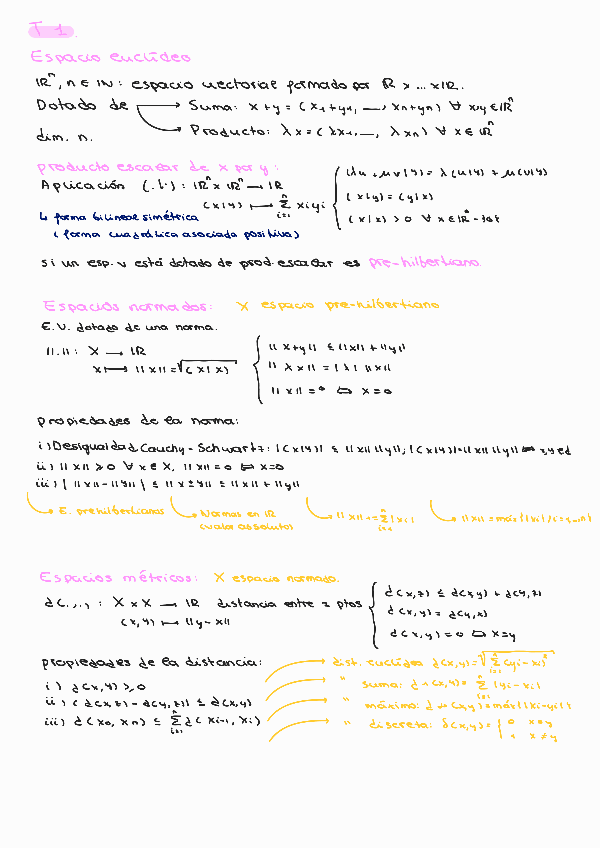 T 1.
Espacio euclídeo
ℝⁿ, n ∈ ℕ: espacio vectorial formado por ℝ x ... x ℝ.
Dotado de → Suma: x + y = (x₁ + y₁, —, xₙ + yₙ) ∀ x,y ∈ ℝⁿ
→ Producto: λx = (λx₁, —, λxₙ) ∀ x ∈ ℝⁿ
dim. n.
producto escalar de x por y:
Aplicación (.|.): ℝⁿ x ℝⁿ → ℝ
(x|y) ↦ Σᵢ₌₁ⁿ xᵢyᵢ
(λu + μv|y) = λ(u|y) + μ(v|y)
(x|y) = (y|x)
(x|x) > 0 ∀ x ∈ ℝⁿ - {0}
↳ forma bilineal simétrica
(forma cuadrática asociada positiva)
si un esp. v está dotado de prod. escalar es pre-hilbertiano.
Espacios normados: X espacio pre-hilbertiano
E.V. dotado de una norma.
||.||: X → ℝ
x ↦ ||x|| = √(x|x)
||x+y|| ≤ ||x|| + ||y||
||λx|| = |λ| ||x||
||x|| = 0 ⇔ x = 0
propiedades de la norma:
i) Desigualdad Cauchy - Schwartz: |(x|y)| ≤ ||x|| ||y||; |(x|y)| = ||x|| ||y|| ⇔ x,y ld
ii) ||x|| ≥ 0 ∀ x ∈ X, ||x|| = 0 ⇔ x = 0
iii) | ||x|| - ||y|| | ≤ ||x ± y|| ≤ ||x|| + ||y||
→ E. prehilbertianos → Normas en ℝ → ||x||₁ = Σᵢ₌₁ⁿ |xᵢ| → ||x|| = máx{|xᵢ| / i = 1,...,n}
(valor absoluto)
Espacios métricos: X espacio normado.
d(.,.): X x X → ℝ distancia entre 2 ptos
(x,y) ↦ ||y - x||
d(x,z) ≤ d(x,y) + d(y,z)
d(x,y) = d(y,x)
d(x,y) = 0 ⇔ x = y
propiedades de la distancia:
i) d(x,y) ≥ 0
ii) |d(x,z) - d(y,z)| ≤ d(x,y)
iii) d(x₀, xₙ) ≤ Σᵢ₌₁ⁿ d(xᵢ₋₁, xᵢ)
→ dist. euclídea d(x,y) = √Σᵢ₌₁ⁿ (yᵢ - xᵢ)²
→ " suma: d₁(x,y) = Σᵢ₌₁ⁿ |yᵢ - xᵢ|
→ " máximo: d∞(x,y) = máx{|xᵢ - yᵢ|}
→ " discreta: δ(x,y) = { 0 x = y
1 x ≠ y